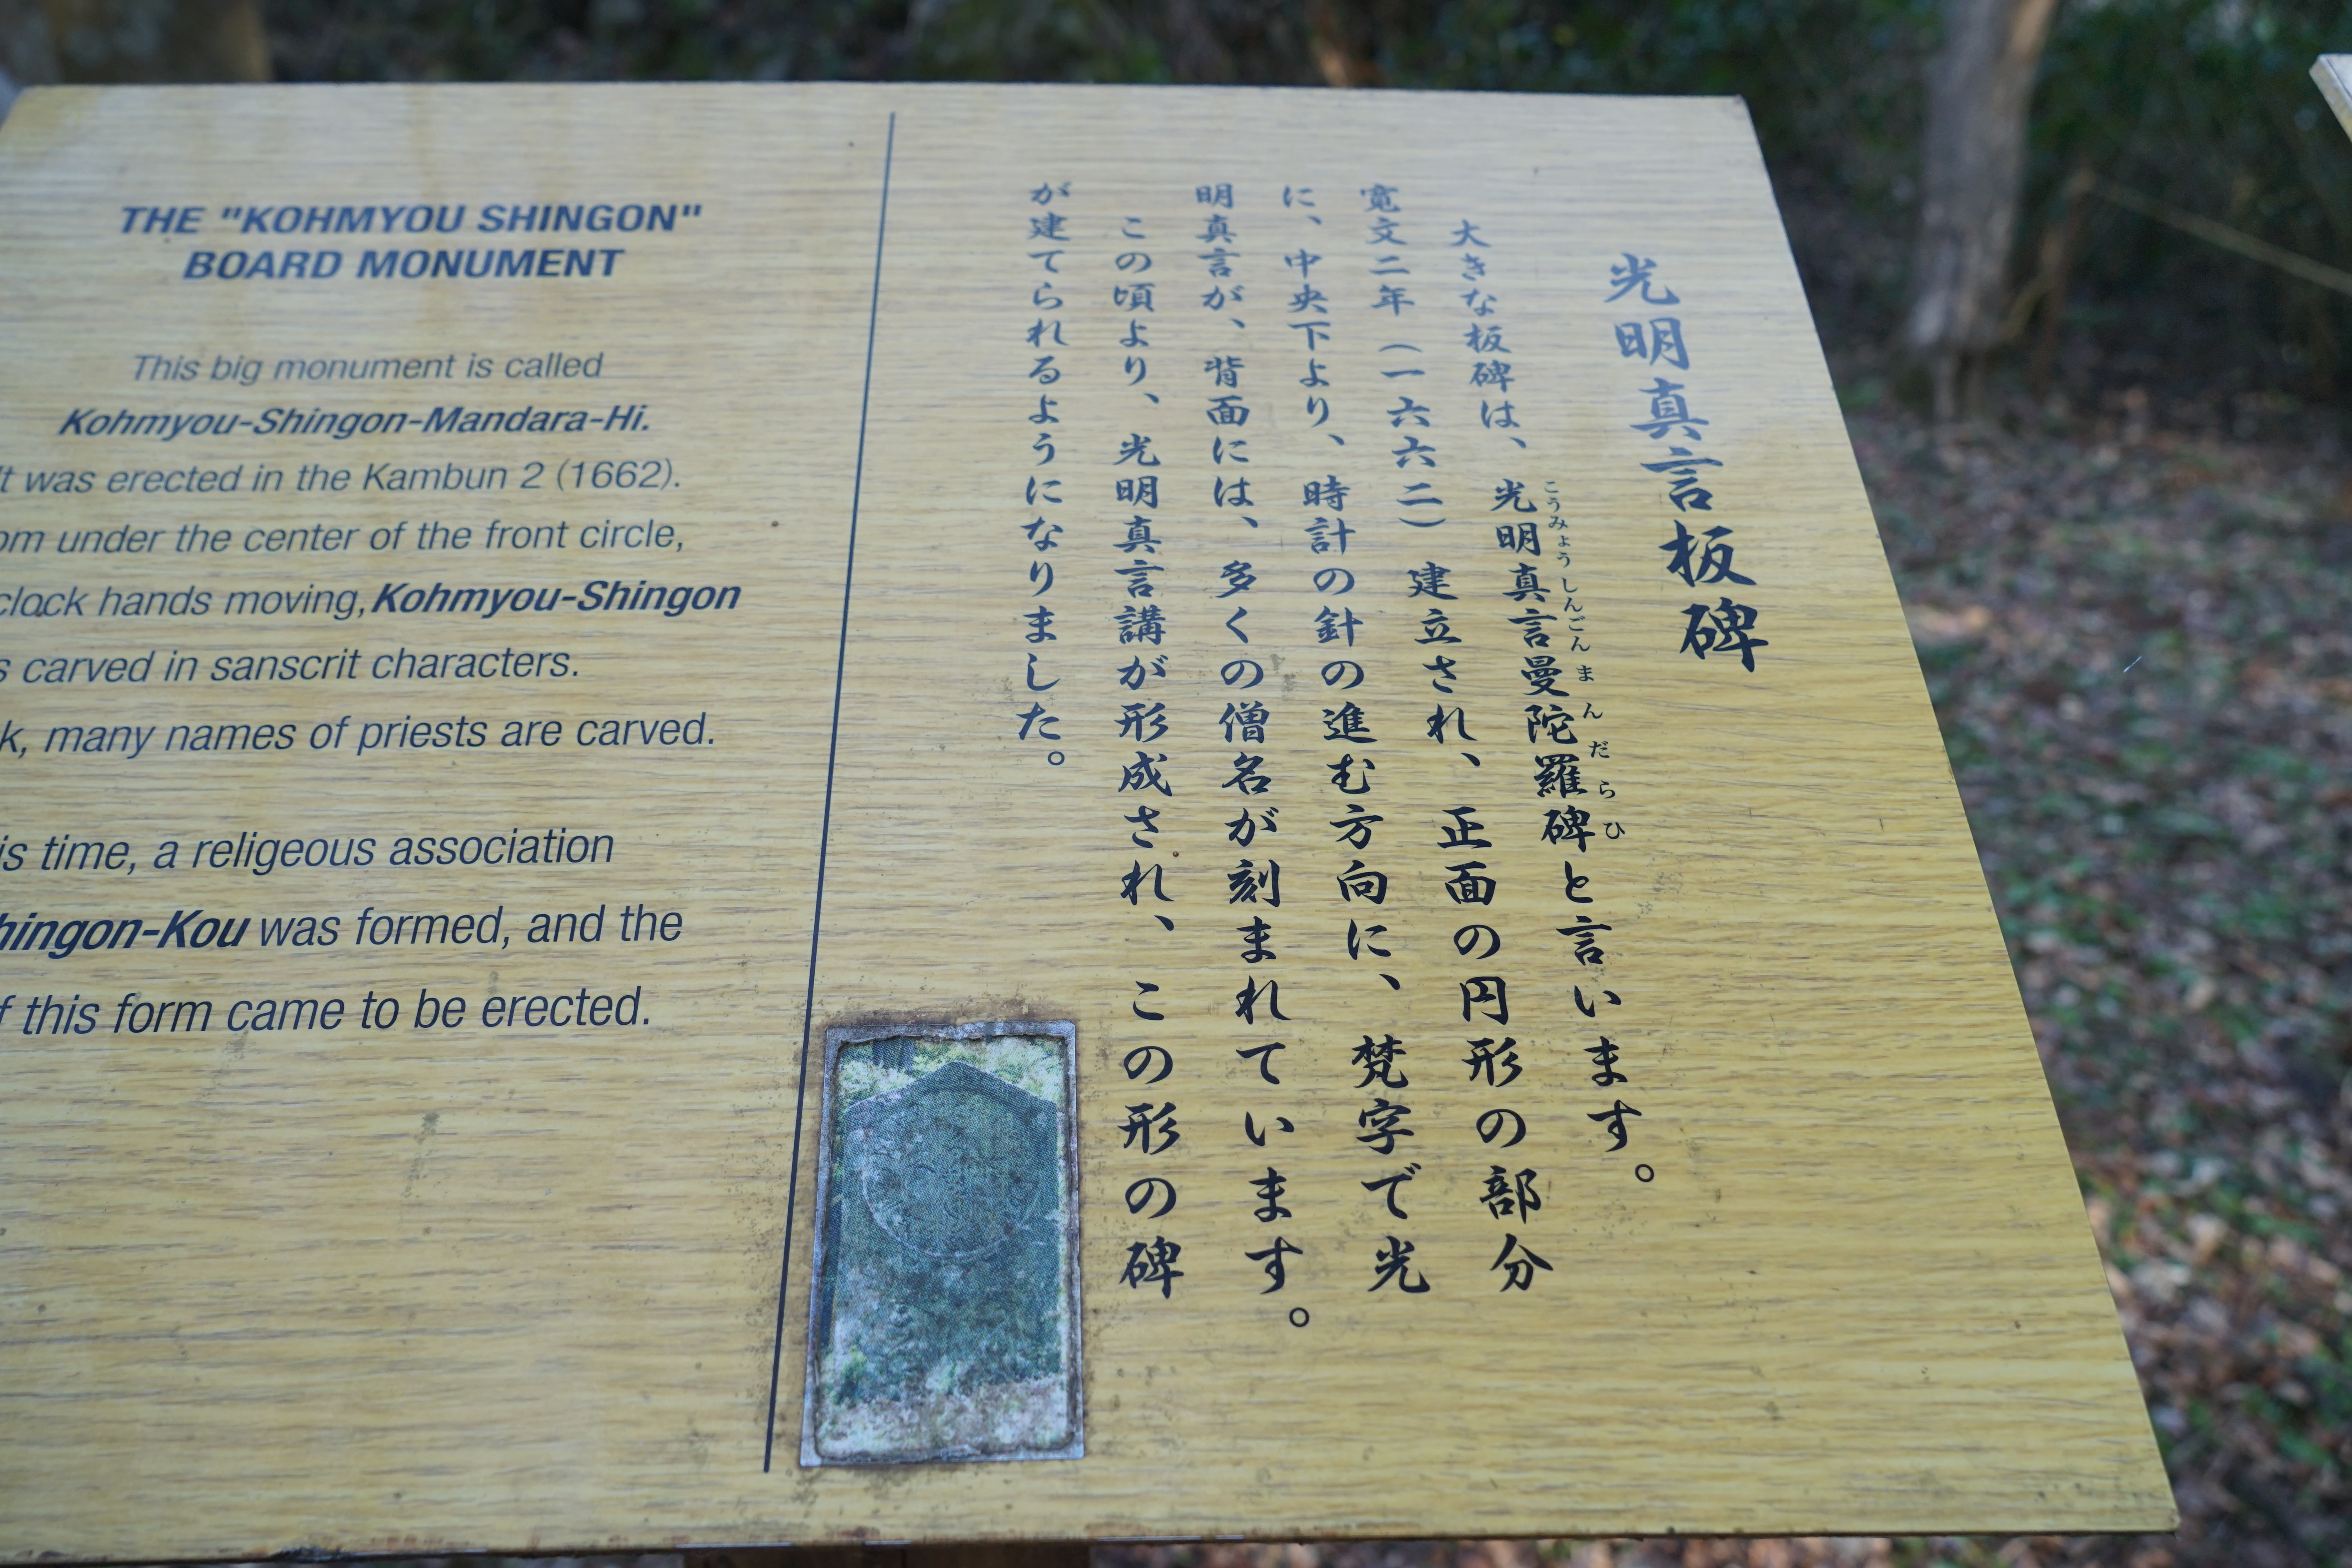 THE "KOHMYOU SHINGON"
BOARD MONUMENT
This big monument is called
Kohmyou-Shingon-Mandara-Hi.
It was erected in the Kambun 2 (1662).
under the center of the front circle,
clock hands moving, Kohmyou-Shingon
carved in sanscrit characters.
many names of priests are carved.
time, a religeous association
was formed, and the
this form came to be erected.
光明真言板碑
大きな板碑は、光明真言曼陀羅碑と言います。
こうみょうしんごんまんだらひ
寛文二年（一六六二）建立され、正面の円形の部分
に、中央下より、時計の針の進む方向に、梵字で光
明真言が、背面には、多くの僧名が刻まれています。
この頃より、光明真言講が形成され、この形の碑
が建てられるようになりました。